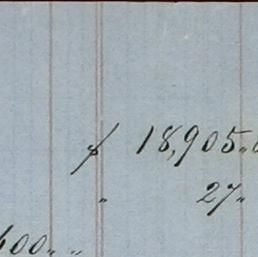 $ 18,905.
" 27"
600 " "